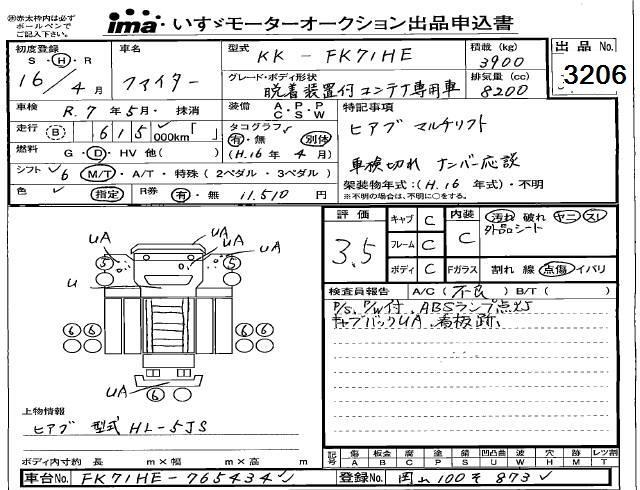 ㊟赤太枠内は必ず
ボールペンで
ご記入下さい。
ima いすゞモーターオークション出品申込書
初度登録
S・H・R
16年 4月
車名
ファイター
型式
KK-FK71HE
積載 (kg)
3900
グレード・ボディ形状
脱着装置付コンテナ専用車
排気量 (cc)
8200
出品No.
3206
車検 R.7年5月・抹消
装備 A・P・P
C・S・W
特記事項
ヒアブ マルチリフト
車検切れ ナンバー応談
走行 B 615,000km「 」
タコグラフ
有・無 別体
(H.16年4月)
燃料 G・D・HV 他( )
シフト 6 M/T・A/T・特殊(2ペダル・3ペダル)
架装物年式:(H.16年式)・不明
※不明の場合は、不明に○をする。
色 指定 R券 有・無 11,510円
評価
3.5
キャブ C
フレーム C
ボディ C
内装
C
汚れ 破れ ヤニ スレ
Fガラス 割れ 線 点傷 イバリ
検査員報告 A/C(不良) B/T( )
P/S、P/W付、ABSランプ点灯
キャブバックUA、看板跡、
UA
UA
UA
UA
U
5
5
6 6
6 6
UA
6
上物情報
ヒアブ 型式HL-5JS
ボディ内寸約 長 m×幅 m×高 m
記号 傷 板金 腐 塗 錆 凹凸曲 波 穴 跡 レツ割
A B C P S U W H M T
車台No. FK71HE-765434
登録No. 岡山100そ873